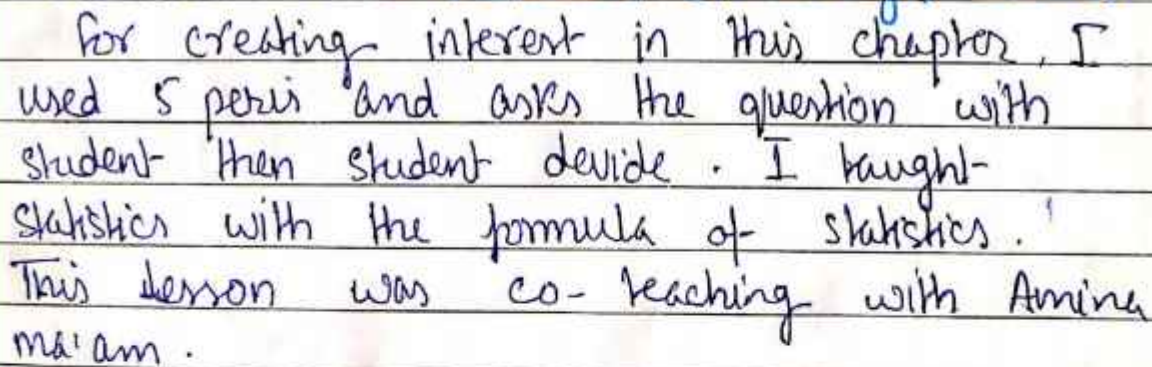 for creating interest in this chapter, I
used 5 pens and asks the question with
student then student devide. I taught
statistics with the formula of statistics.
This lesson was co-teaching with Amina
ma'am.